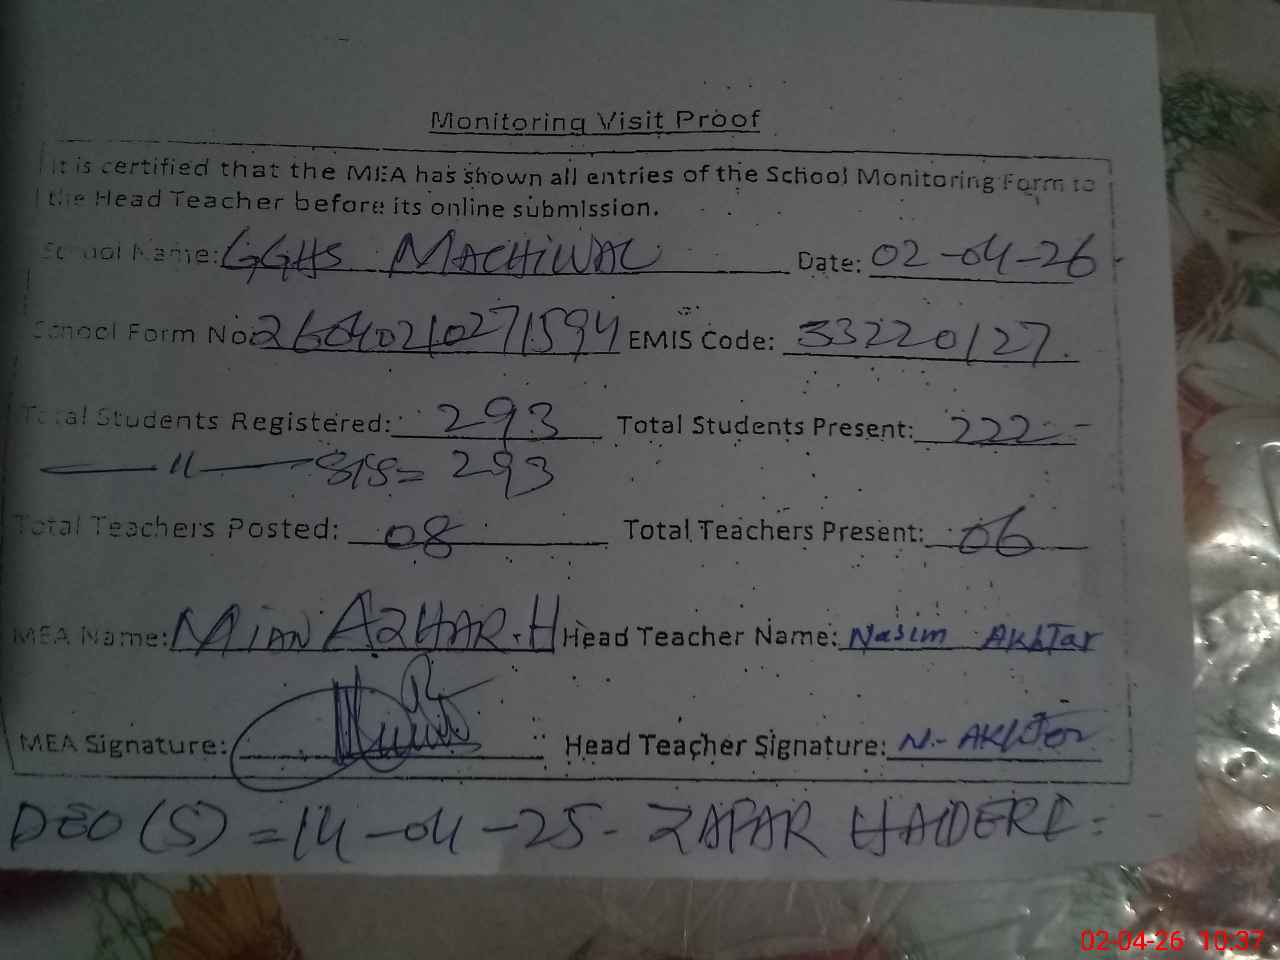 Monitoring Visit Proof
It is certified that the MEA has shown all entries of the School Monitoring Form to
the Head Teacher before its online submission.
School Name: GGHS MACHIWAL Date: 02-04-26
School Form No: 26040210271594 EMIS Code: 33220127.
Total Students Registered: 293 Total Students Present: 222
— 11 — SIS = 293
Total Teachers Posted: 08 Total Teachers Present: 06
MEA Name: MIAN AZHAR.H Head Teacher Name: Nasim Akhtar
MEA Signature: Head Teacher Signature: N- Akhtar
DEO (S) = 14-04-25- ZAFAR HAIDER
02-04-26 10:37